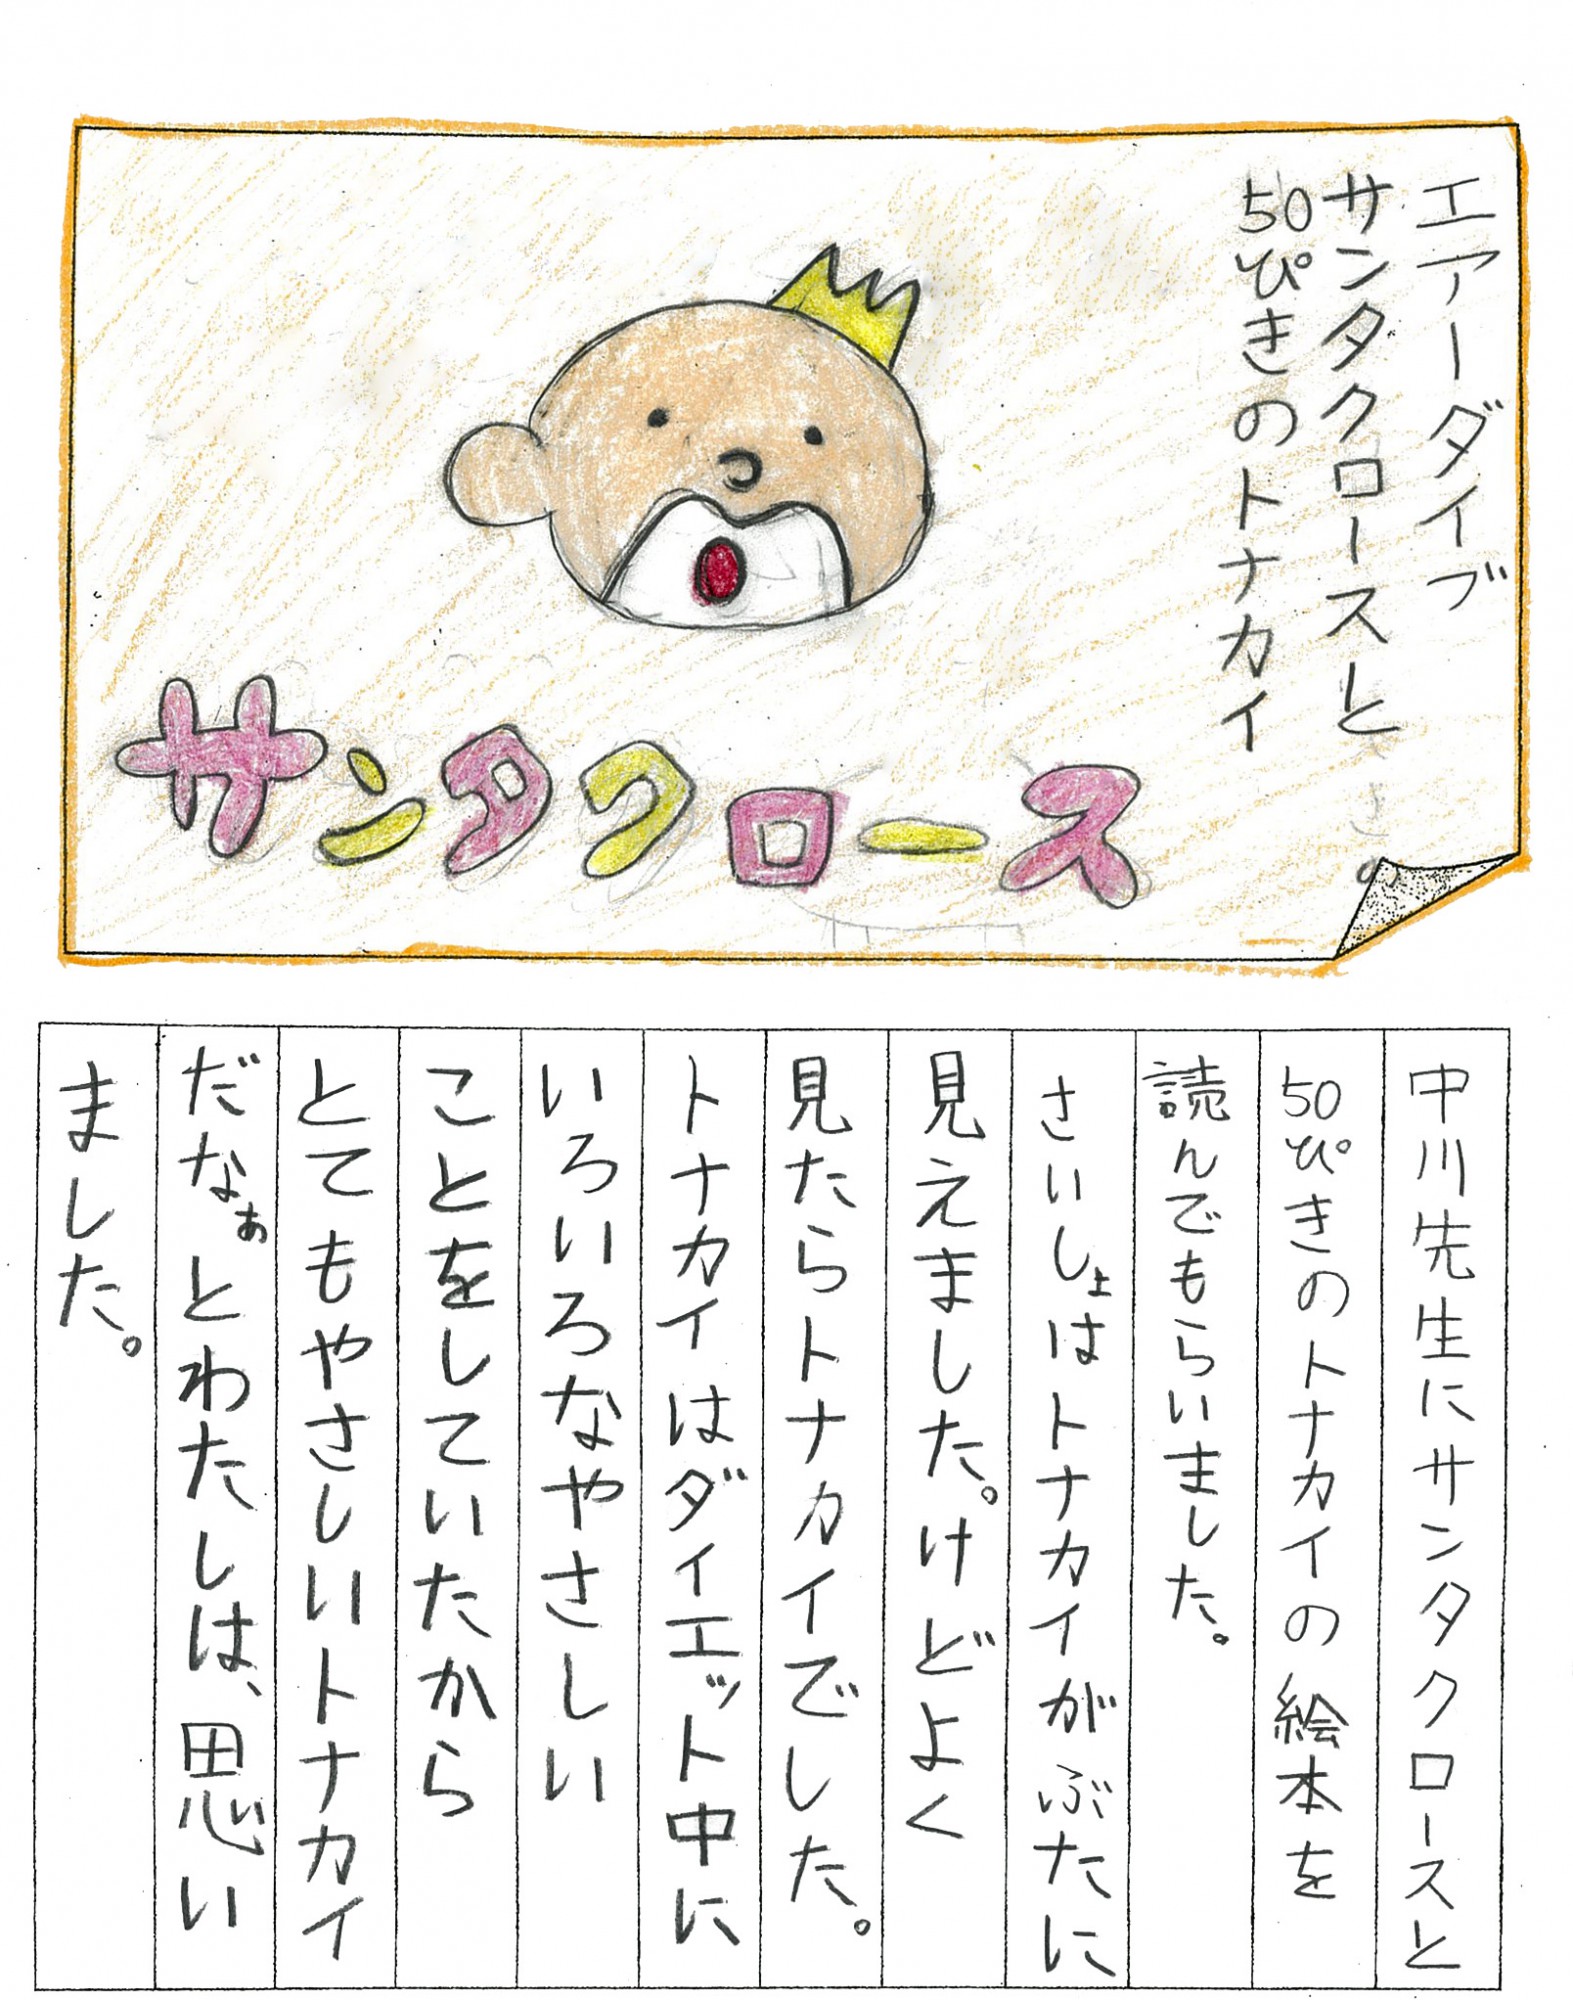 エアーダイブ
サンタクロースと
50ぴきのトナカイ
サンタクロース
中川先生にサンタクロースと
50ぴきのトナカイの絵本を
読んでもらいました。
さいしょはトナカイがぶたに
見えました。けどよく
見たらトナカイでした。
トナカイはダイエット中に
いろいろなやさしい
ことをしていたから
とてもやさしいトナカイ
だなぁとわたしは、思い
ました。